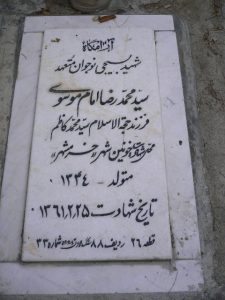 آرامگاه
شهید بسیجی نوجوان متعهد
سید محمد رضا امام موسوی
فرزند حجة الاسلام سید محمد کاظم
محل شهادت خونین شهر «خرمشهر»
متولد - ۱۳۴۴
تاریخ شهادت ۱۳۶۱,۲,۲۵
قطعه ۲۶ ردیف ۸۸ شماره ۳۳